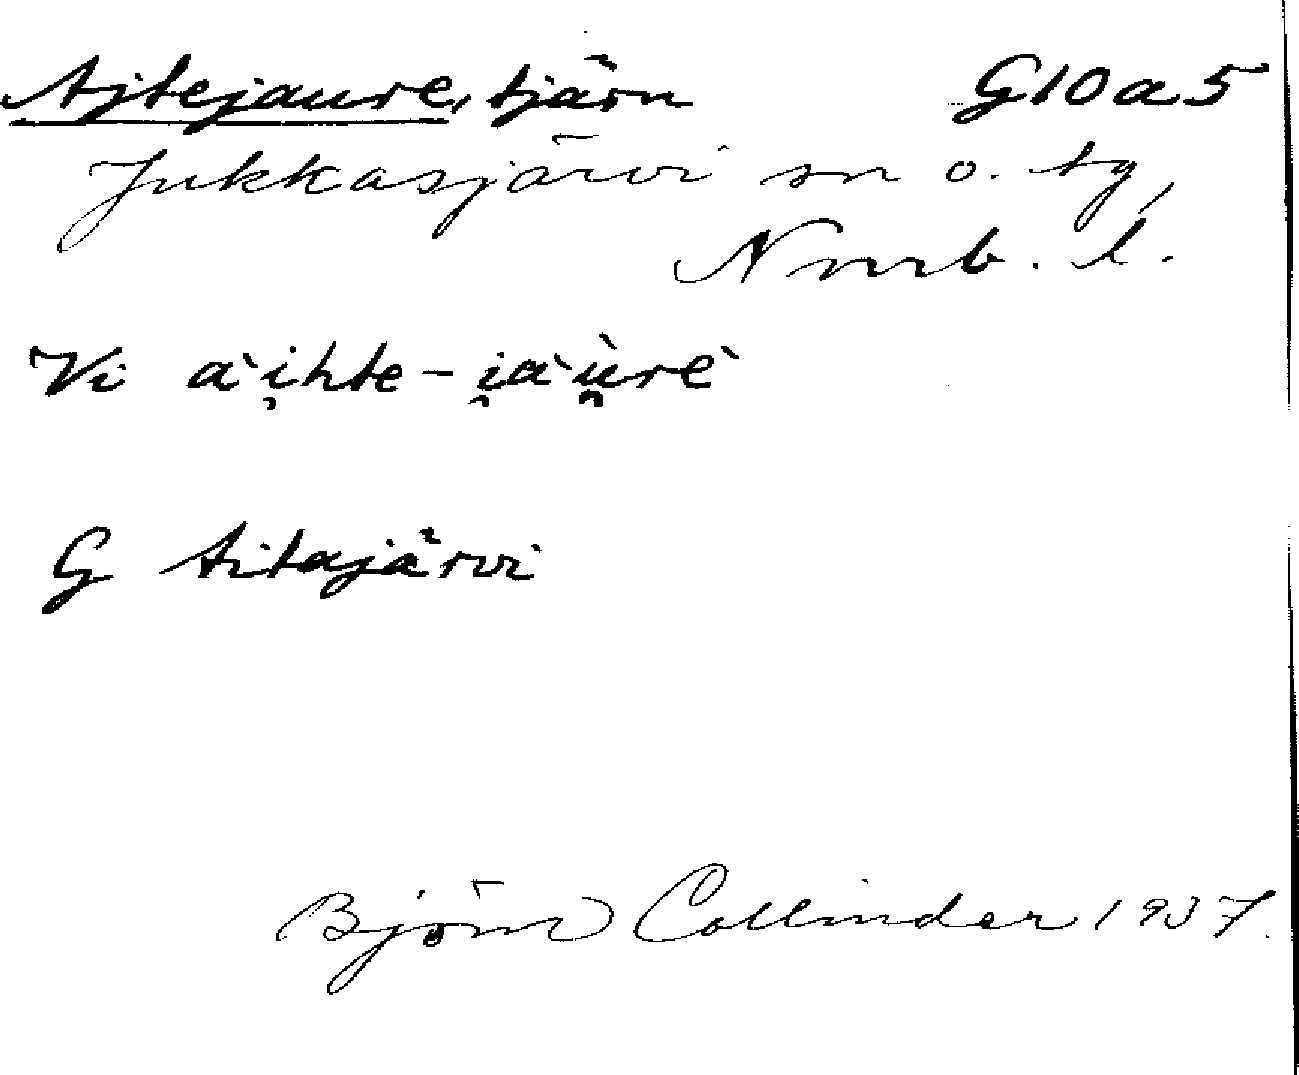 Ajtejaure, tjärn G10a5
Jukkasjärvi sn o. tg,
Nrrb. l.
Vi a`i̯hte-i̯a`u̯̇re`
G Aitajärvi
Björn Collinder 1937.